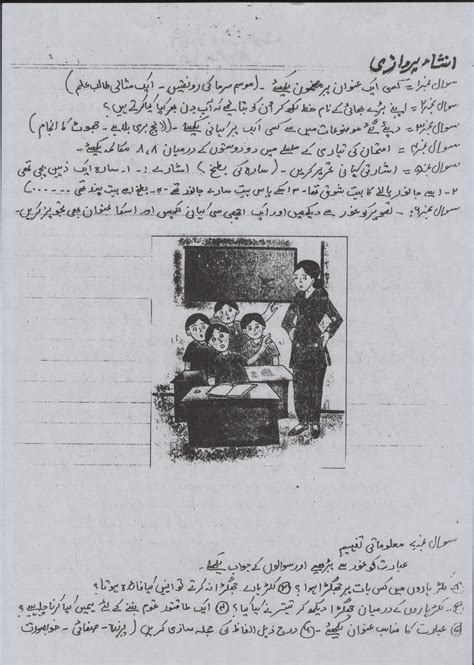 انشاء پردازی
سوال نمبر۱:- کسی ایک عنوان پر مضمون لکھیے۔ (موسم سرما کی رونقیں - ایک مثالی طالب علم)
سوال نمبر۲:- اپنے بڑے بھائی کے نام خط لکھ کر ان کو بتائیے کہ آپ دن بھر کیا کرتے ہیں؟
سوال نمبر۳:- دیئے گئے موضوعات میں سے کسی ایک پر کہانی لکھیے۔ (لالچ بری بلا ہے - جھوٹ کا انجام)
سوال نمبر۴:- امتحان کی تیاری کے سلسلے میں دو دوستوں کے درمیان ۸،۸ مکالمے لکھیے۔
سوال نمبر۵:- اشارتی کہانی تحریر کریں۔ (سارہ کی بطخ) اشارے:- ۱- سارہ ایک ذہین بچی تھی
۲- اسے جانور پالنے کا بہت شوق تھا - ۳- اسکے پاس بہت سارے جانور تھے - ۴- بطخ اسے بہت پسند تھی ......)
سوال نمبر۶:- تصویر کو غور سے دیکھیں اور ایک اچھی سی کہانی لکھیں اور اسکا عنوان بھی تجویز کریں۔
سوال نمبر۷ معلوماتی تفہیم
عبارت کو غور سے پڑھیے اور سوالوں کے جواب لکھیے۔
لکڑہاروں میں کس بات پر جھگڑا ہوا؟ لکڑہارے جھگڑا نہ کرتے تو انہیں کیا فائدہ ہوتا؟
لکڑہاروں کے درمیان جھگڑا دیکھ کر تیسرے نے کیا کیا؟ ایک طاقتور قوم بننے کے لئے ہمیں کیا کرنا چاہیے؟
عبارت کا مناسب عنوان لکھیے - درج ذیل الفاظ کی جملہ سازی کریں (پرندہ - صفائی - خوبصورت